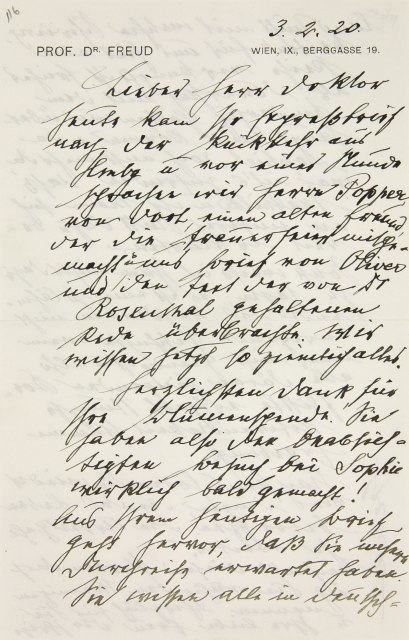 116
3. 2. 20.
PROF. DR. FREUD WIEN, IX., BERGGASSE 19.
Lieber Herr Doktor
heute kam Ihr Expreßbrief
nach der Rückkehr aus
u vor einer Stunde
sprachen wir Herrn Popper
von dort, einen alten Freund
der die Trauerfeier mitge-
macht u uns Brief von Oliver
und den Text der von Dr
Rosenthal gehaltenen
Rede überbrachte. Wir
wissen jetzt so ziemlich alles.
Herzlichsten Dank für
Ihre Blumenspende. Sie
haben also den beabsich-
tigten Besuch bei Sophie
wirklich bald gemacht!
Aus Ihrem heutigen Brief
geht hervor, daß Sie unsere
Durchreise erwartet haben.
Sie wissen alle in Deutsch-